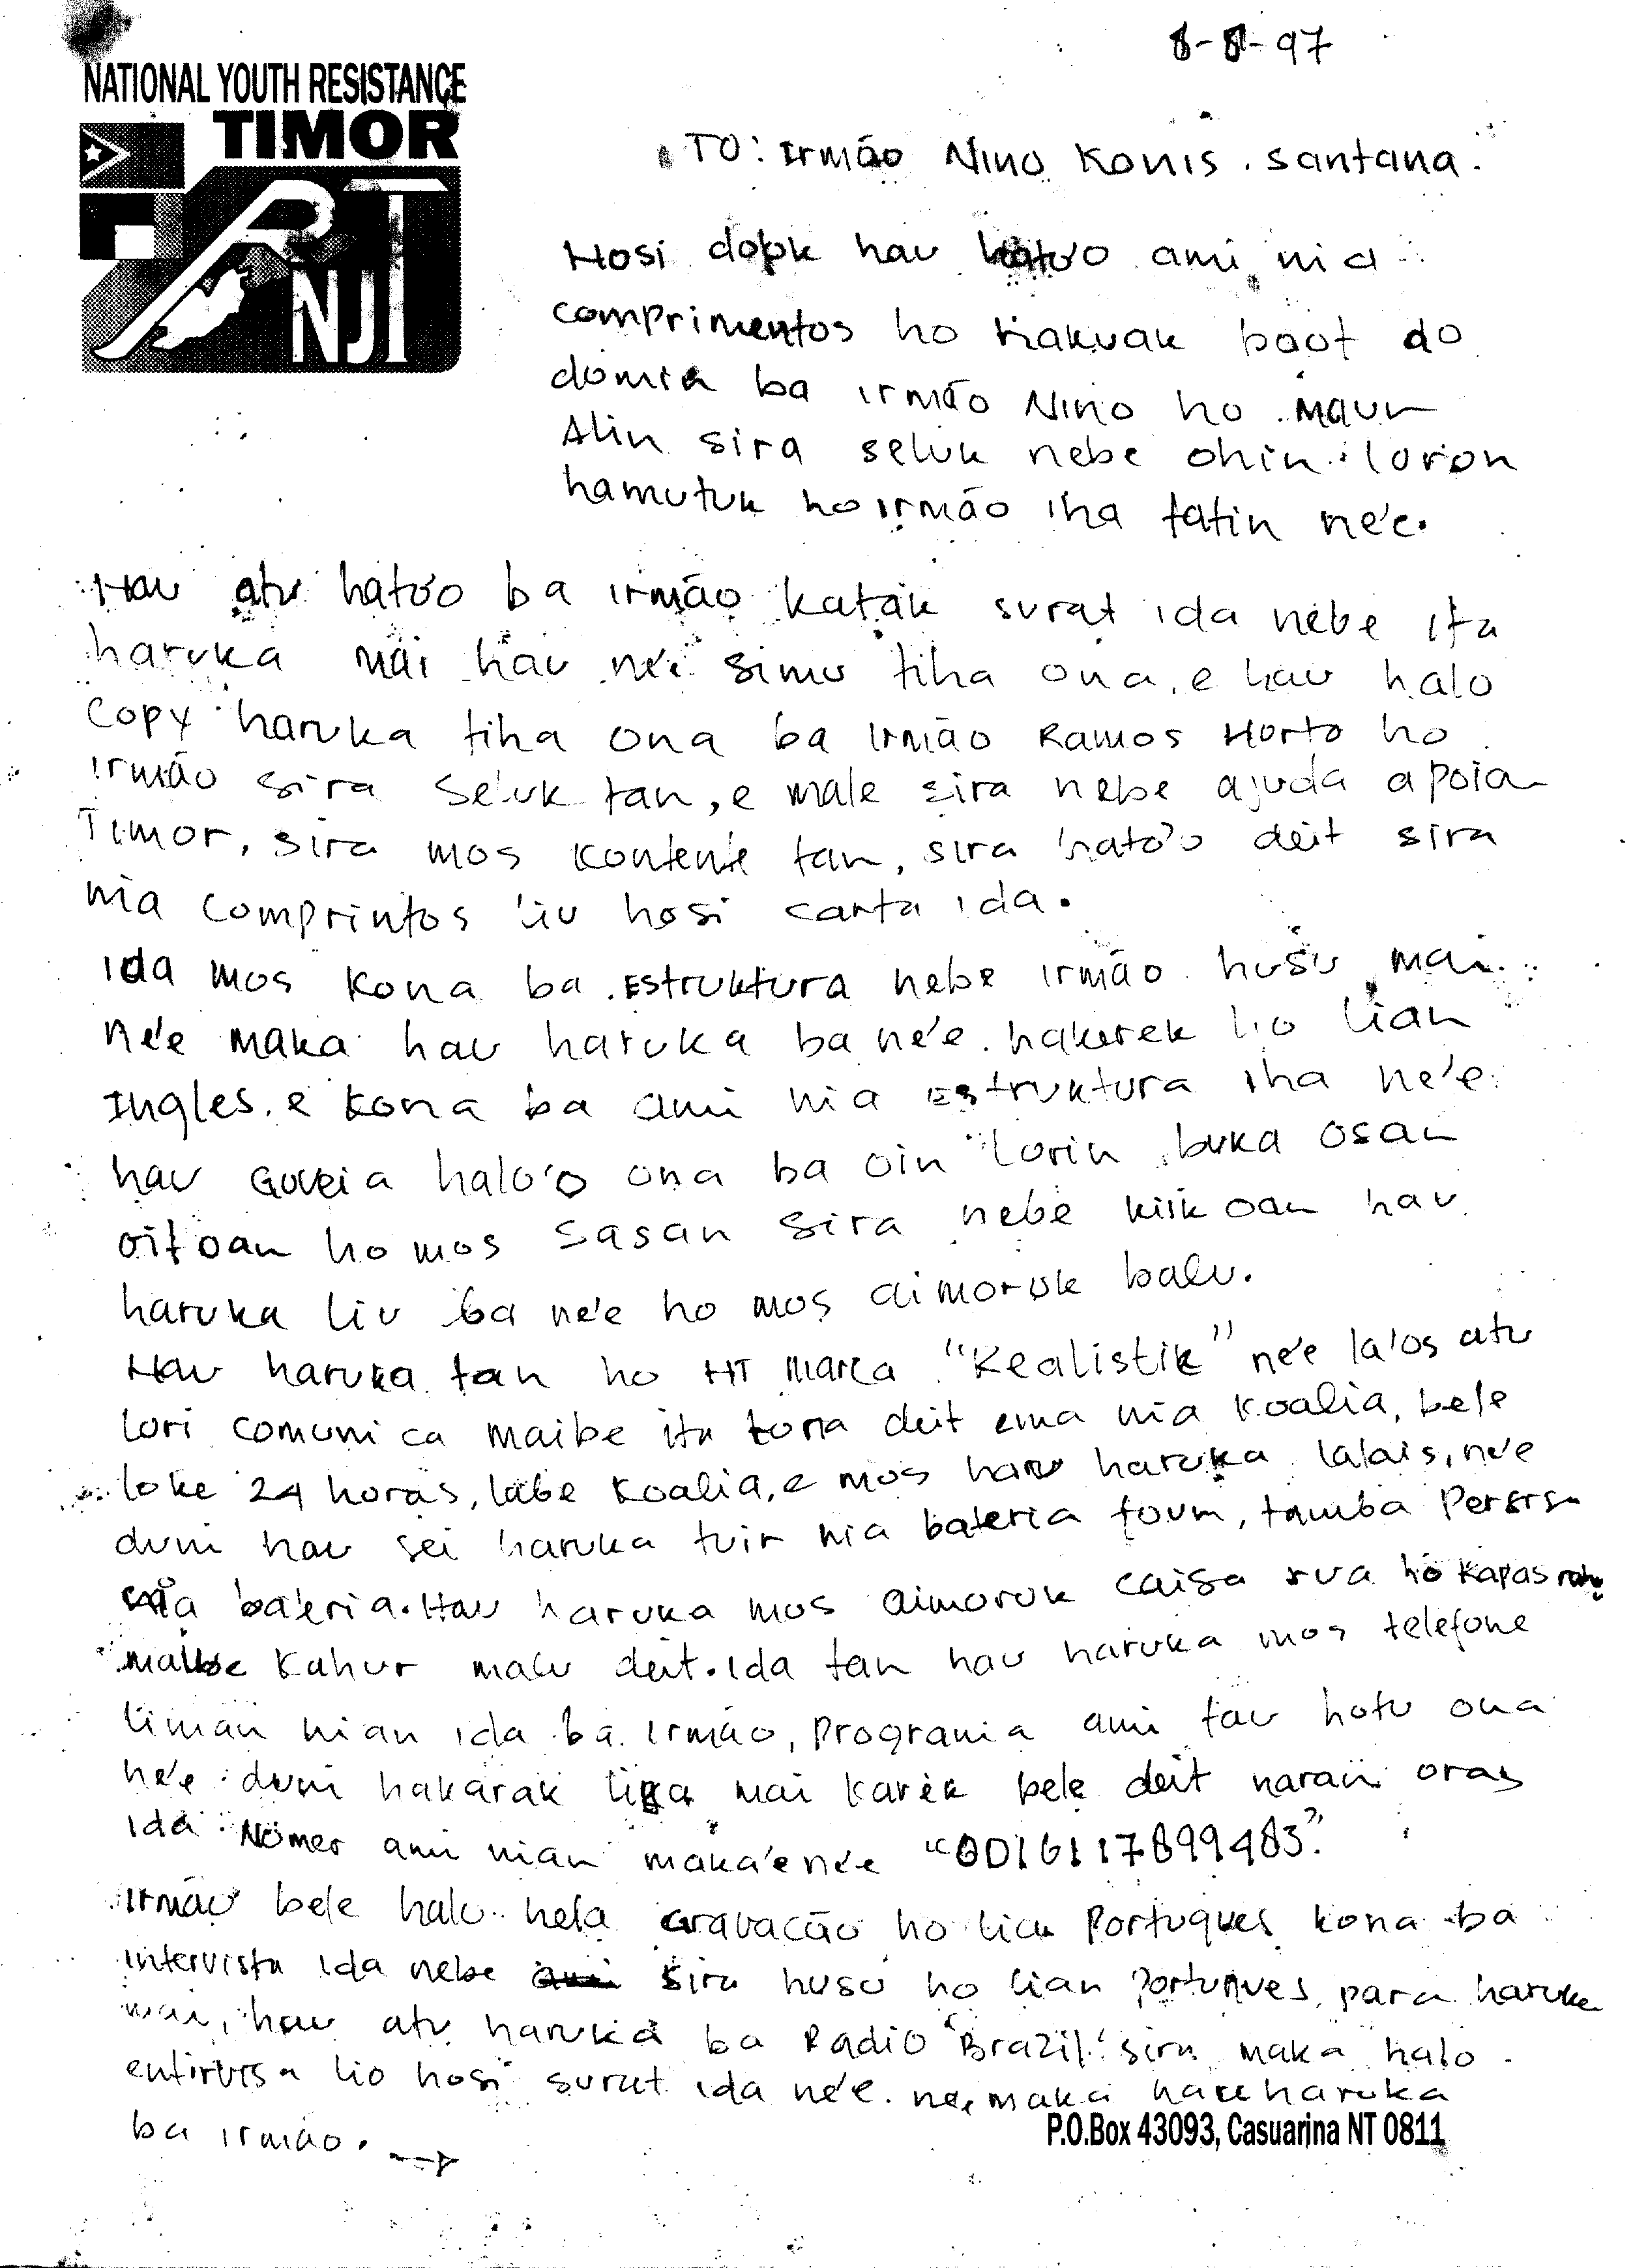 8-8-97
NATIONAL YOUTH RESISTANCE
TIMOR
RNJT
TO: Irmão Nino Konis. Santana.
Hosi dook hau hato'o ami nia
comprimentos ho hakuak boot do
domin ba irmão Nino ho maun
Alin sira seluk nebe ohin loron
hamutuk ho irmão iha fatin ne'e.
Hau atu hato'o ba irmão katak surat ida nebe ita
haruka mai hau ne'e simu tiha ona, e hau halo
Copy haruka tiha ona ba Irmão Ramos Horta ho
irmão sira seluk tan, e male sira nebe ajuda apoia
Timor, sira mos kontente tan, sira hato'o deit sira
nia comprintos liu hosi carta ida.
Ida mos kona ba Estruktura nebe irmão husu mai
ne'e maka hau haruka ba ne'e. hakerek ho lian
Ingles. e kona ba ami nia Estruktura iha ne'e.
hau Goveia halo'o ona ba oin lorin buka osan
oitoan ho mos sasan sira nebe kiik oan hau
haruka liu ba ne'e ho mos aimoruk balu.
Hau haruka tan ho HT marca "Realistik" ne'e la'os atu
lori comunica maibe ita tona deit ema nia koalia, bele
loke 24 horas, labe koalia, e mos hau haruka lalais, ne'e
duni hau sei haruka tuir nia bateria foun, tamba
nia bateria. Hau haruka mos aimoruk caisa rua ho kapas
maibe kahur malu deit. Ida tan hau haruka mos telefone
liman nian ida ba Irmão, Programa ami tau hotu ona
ne'e duni hakarak liga mai karik bele deit naran oras
ida. Nomer ami nian maka'e ne'e "0016117899483".
Irmão bele halo hela Gravacão ho lian Portugues kona ba
intervista ida nebe sira husu ho lian Portugues, para haruka
mai, hau atu haruka ba Radio "Brazil" sira maka halo
entirvisa lio hosi surat ida ne'e. ne'e maka hau haruka
ba irmão. →
P.O.Box 43093, Casuarina NT 0811